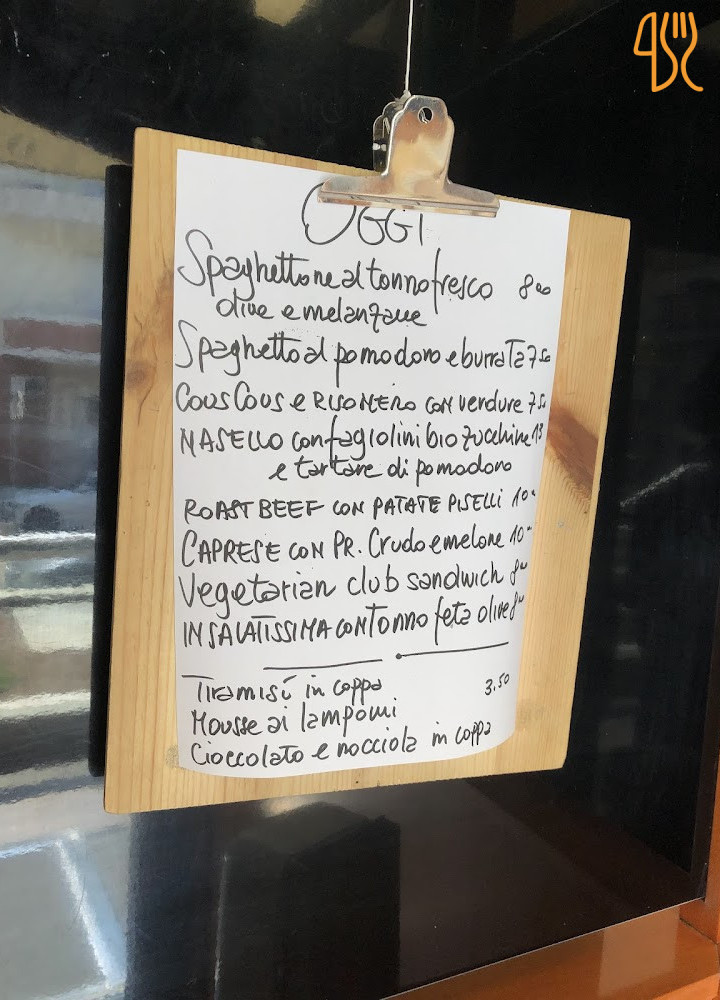 OGGI
Spaghettone al tonno fresco 8 00
olive e melanzane
Spaghetto al pomodoro e burrata 7 50
COUS COUS e RISO NERO CON verdure 7 50
NASELLO con fagiolini bio zucchine 13
e tartare di pomodoro
ROAST BEEF CON PATATE PISELLI 10 -
CAPRESE CON PR. Crudo e melone 10 -
Vegetarian club sandwich 8 00
INSALATISSIMA CON TONNO feta olive 8 00
Tiramisù in coppa 3.50
Mousse ai lamponi
Cioccolato e nocciola in coppa